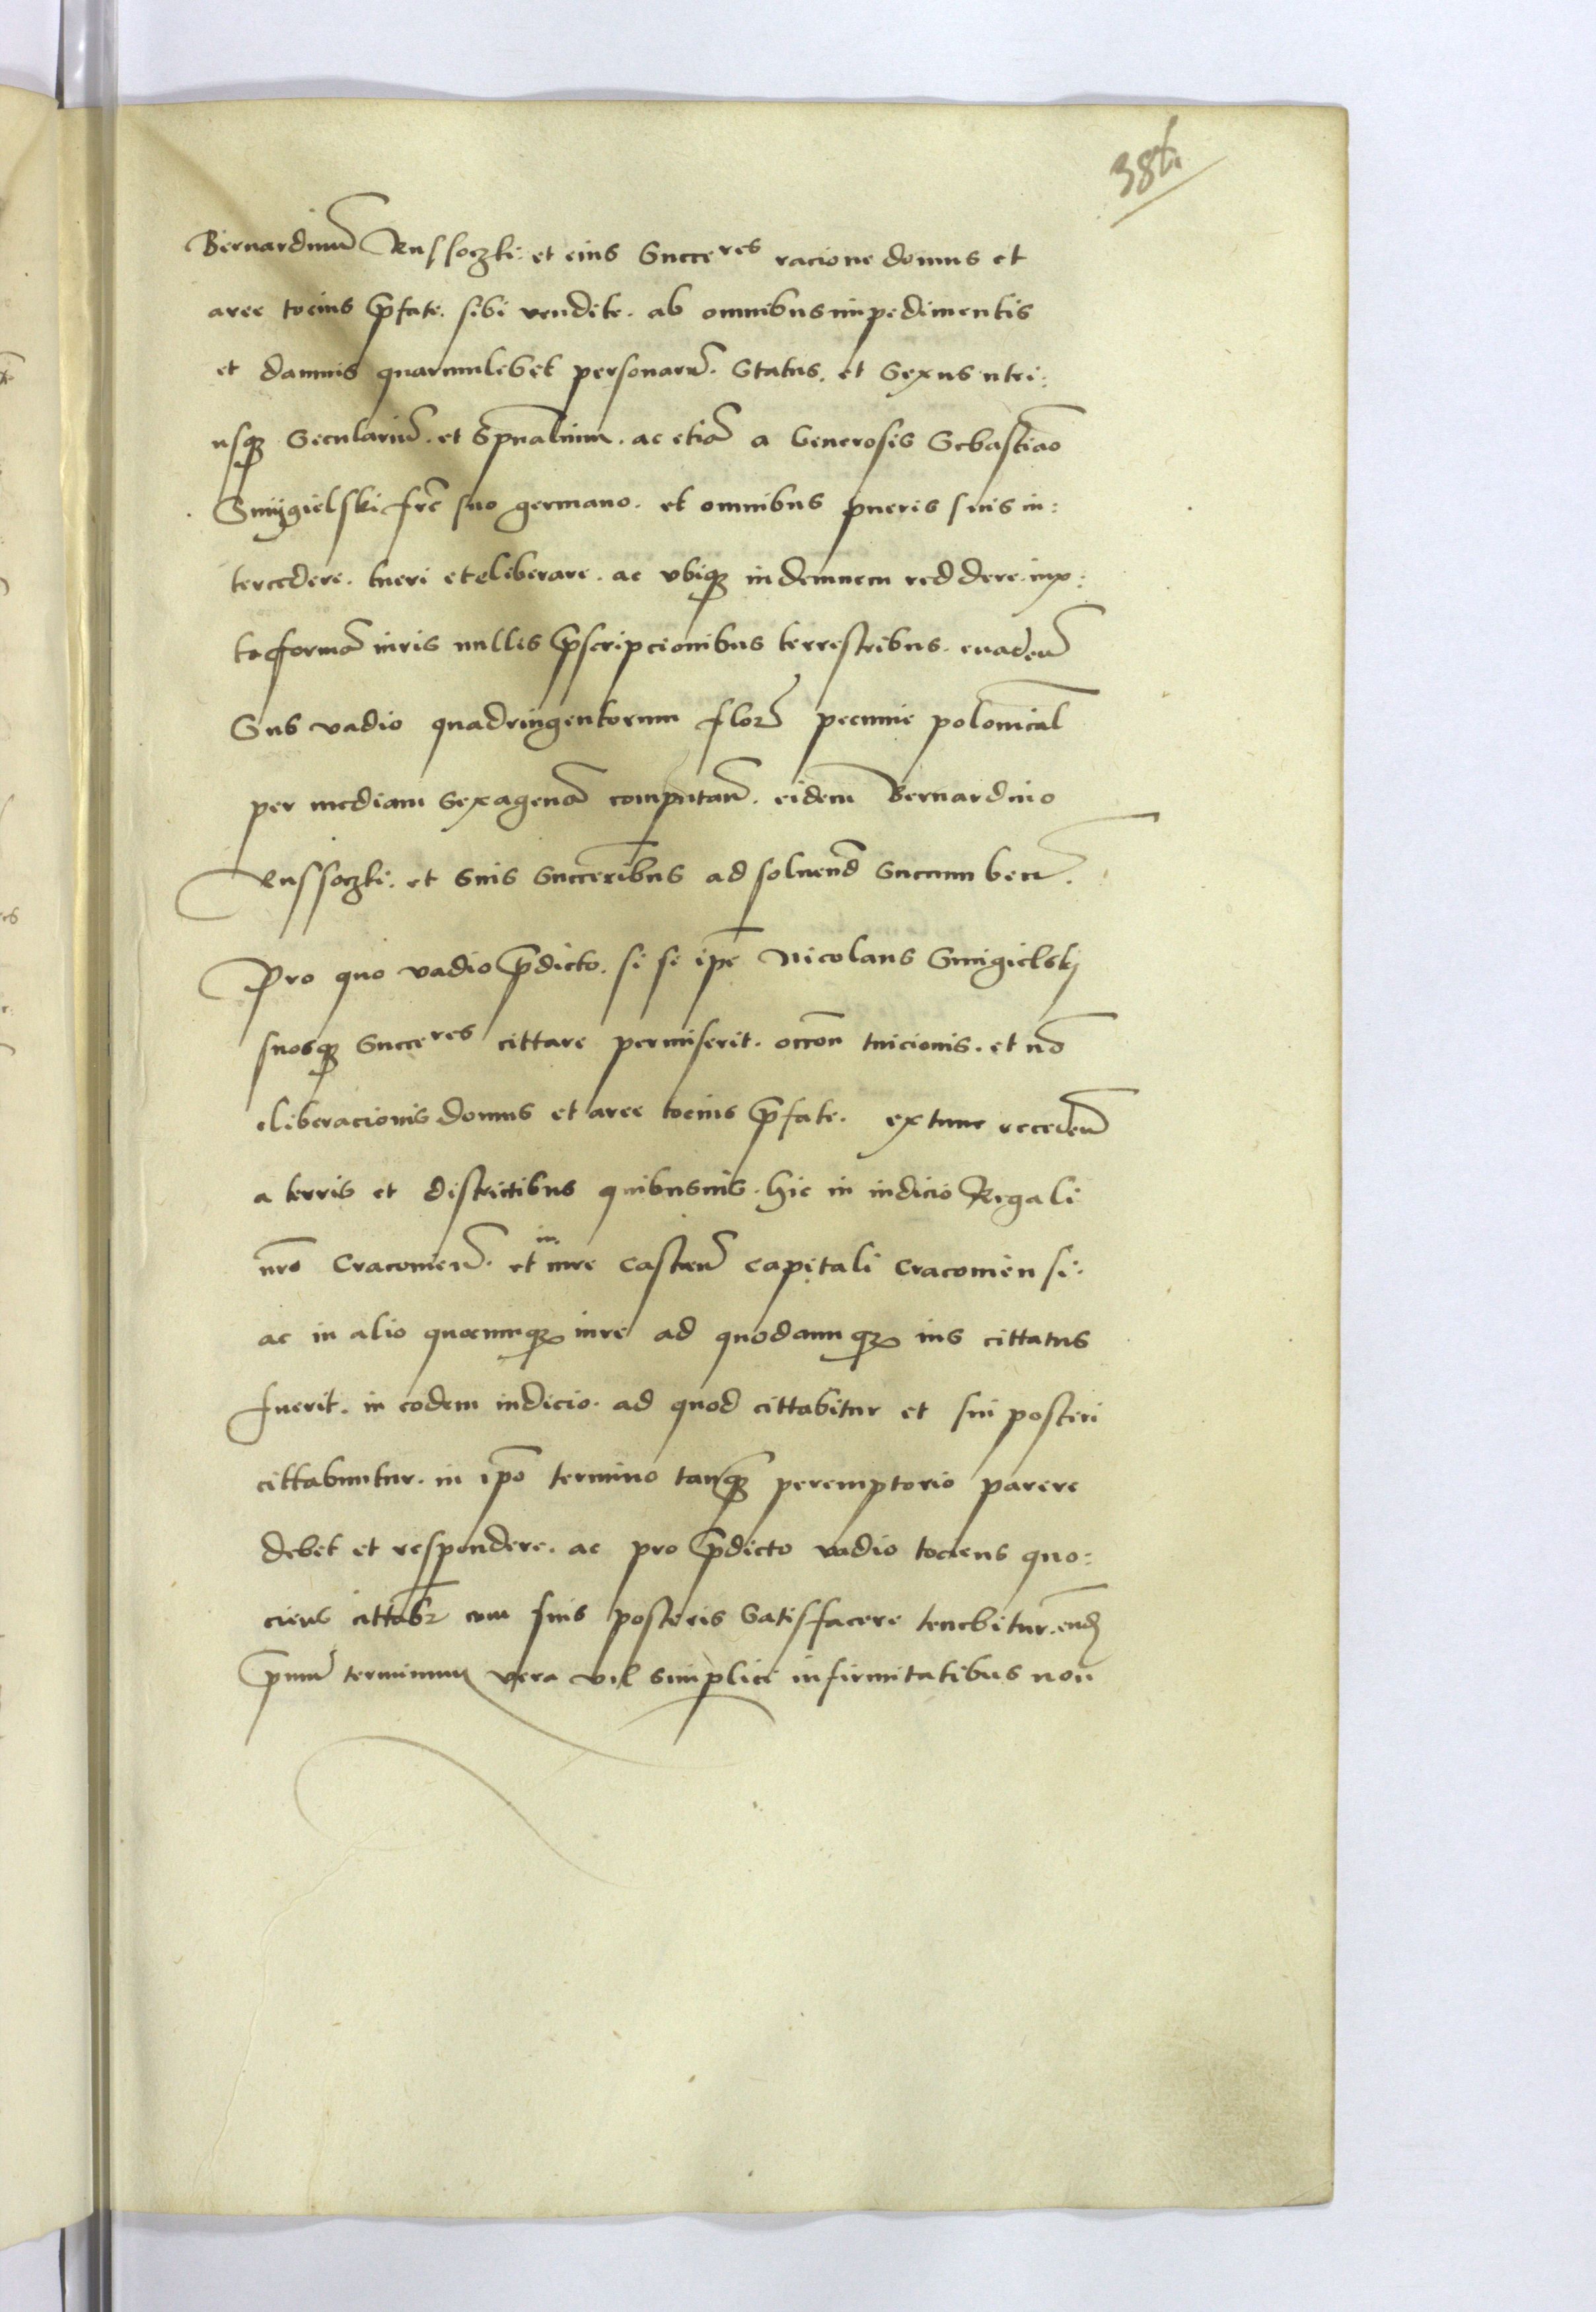 Bernardinū Russoczki et eius Succeres racione domus et
aree tocius p̄fate. sibi vendite. ab omnibus impedimentis
et damnis quarumlibet personarū. Status. et Sexus utri:
usqꝫ Seculariū. et Spūalium. ac etiā a Generosis Sebastiāo
Smÿgielski frē suo germano. et omnibus pueris suis in:
tercedere. tueri et eliberare. ac vbiqꝫ indemnem reddere. iux:
ta formā iuris nullis p̄scripcionibus terrestribus. euadeñ
Sub vadio quadringentorum florꝫ pecunie polonical
per mediam Sexagenā computañ. eidem Bernardino
Russoczki. et suis Succeribus ad soluend̄ Succumbeñ.
Pro quo vadio p̄dicto. si se ip̄e Nicolaus Smigielskj
suosqꝫ Succeres cittare permiserit. occōn tuicionis. et nō
eliberacionis domus et aree tocius p̄fate. extunc recedeñ
a terris et districtibus quibusuis. hic in iudicio Regali
nr̄o Cracovieñ. et in iure Castreñ capitali Cracoviensi.
ac in alio quocumqꝫ iure ad quodcumqꝫ ius cittatus
fuerit. in eodem iudicio. ad quod cittabitur et sui posteri
cittabuntur. in ip̄o termino tanqꝫ peremptorio parere
debet et respondere. ac pro p̄dicto vadio tociens quo:
ciens cittabr̄ cum suis posteris Satisfacere tenebitur.
p̄mū terminum vera vel simplici infirmitatibus non